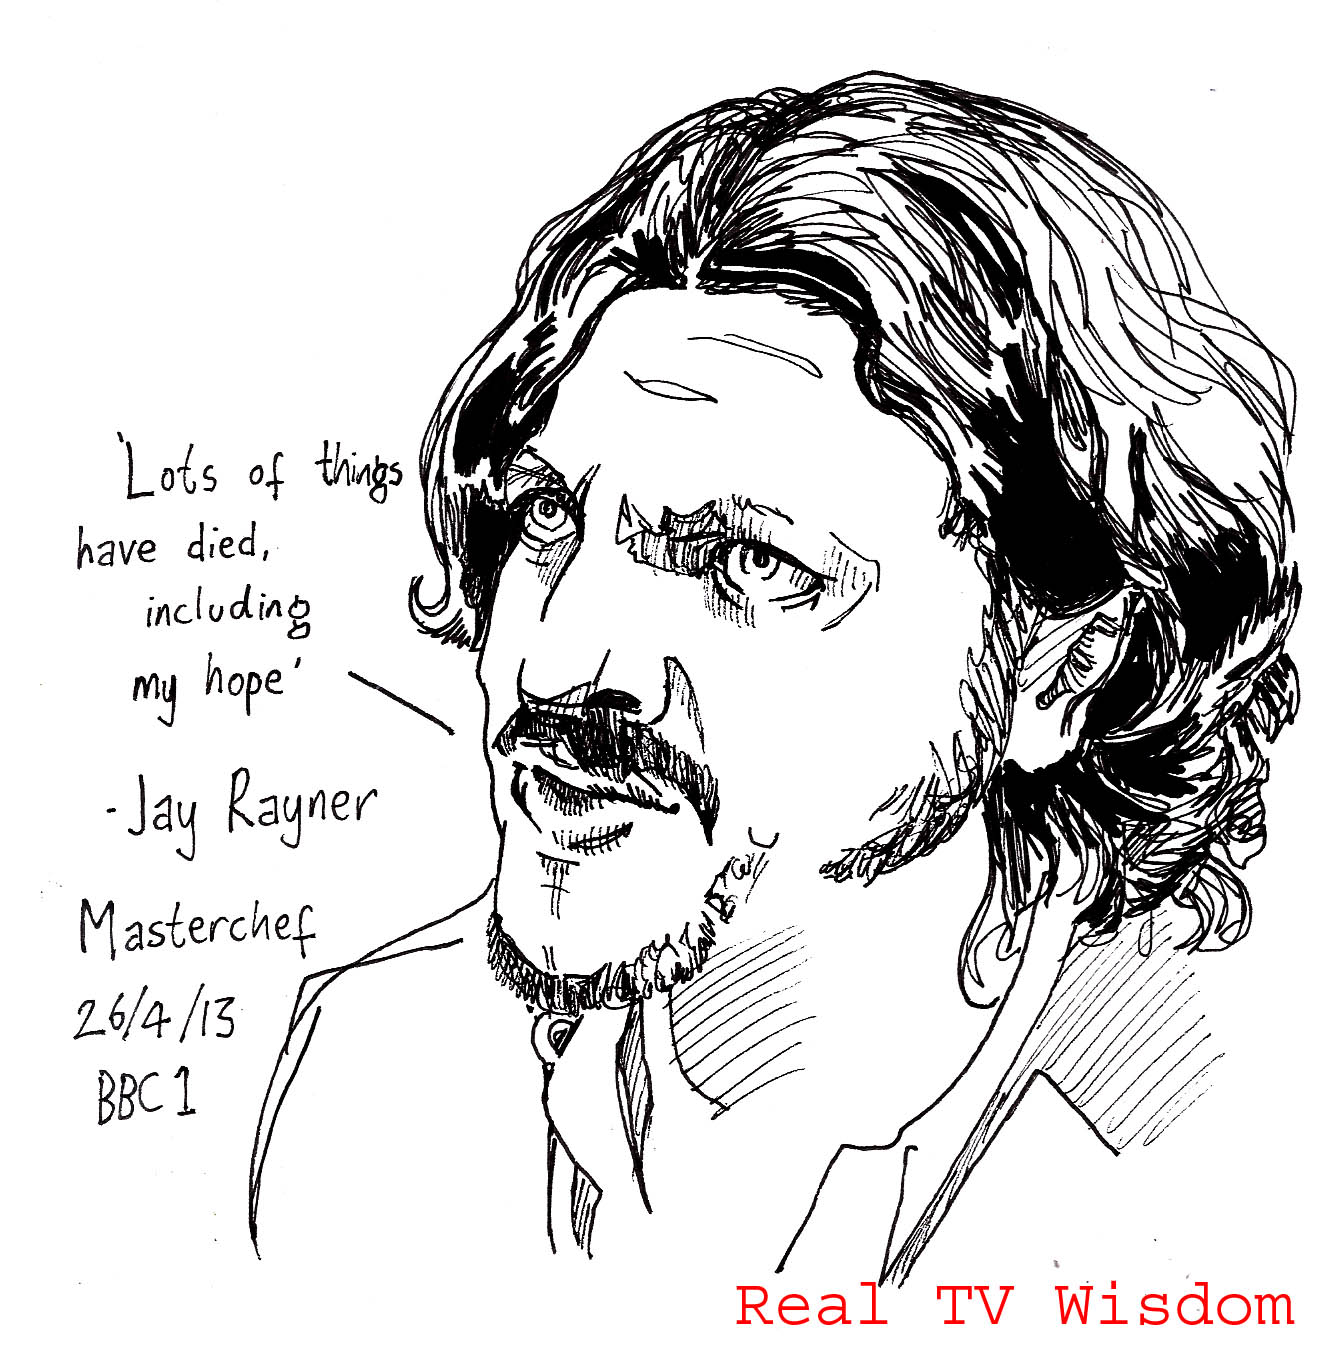 'Lots of things
have died,
including
my hope'
-Jay Rayner
Masterchef
26/4/13
BBC 1
Real TV Wisdom